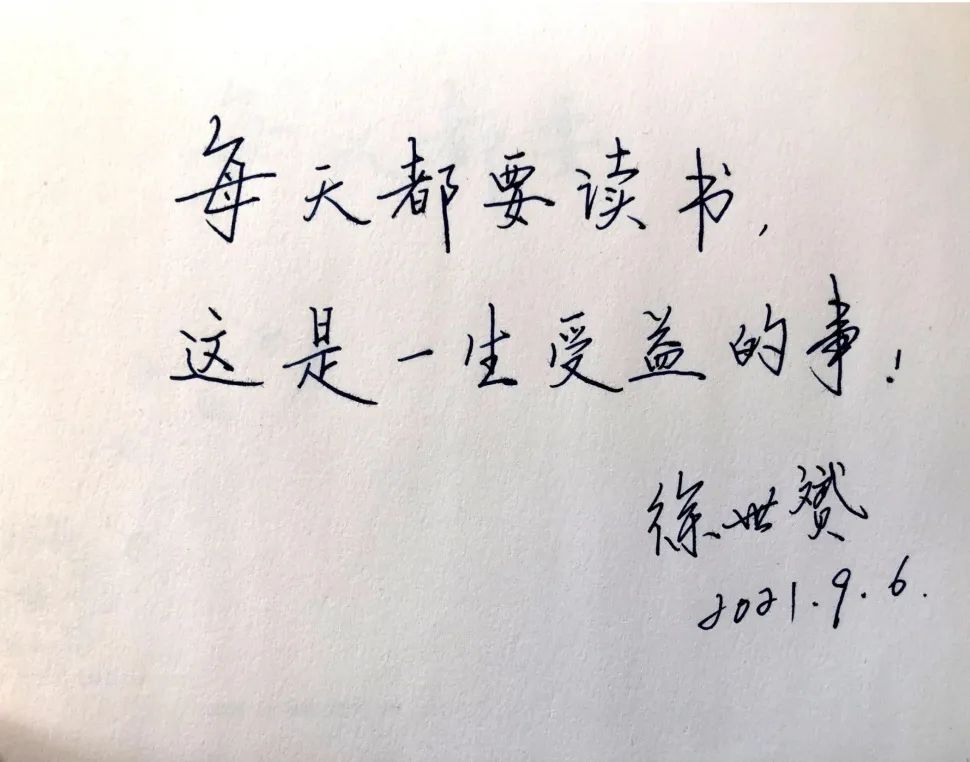 每天都要读书,
这是一生受益的事!
徐世赟
2021.9.6.